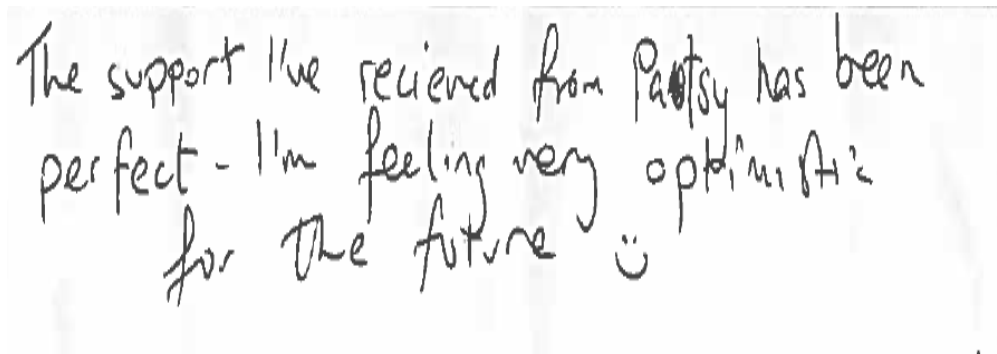 The support I've recieved from Patsy has been
perfect - I'm feeling very optimistic
for the future :)